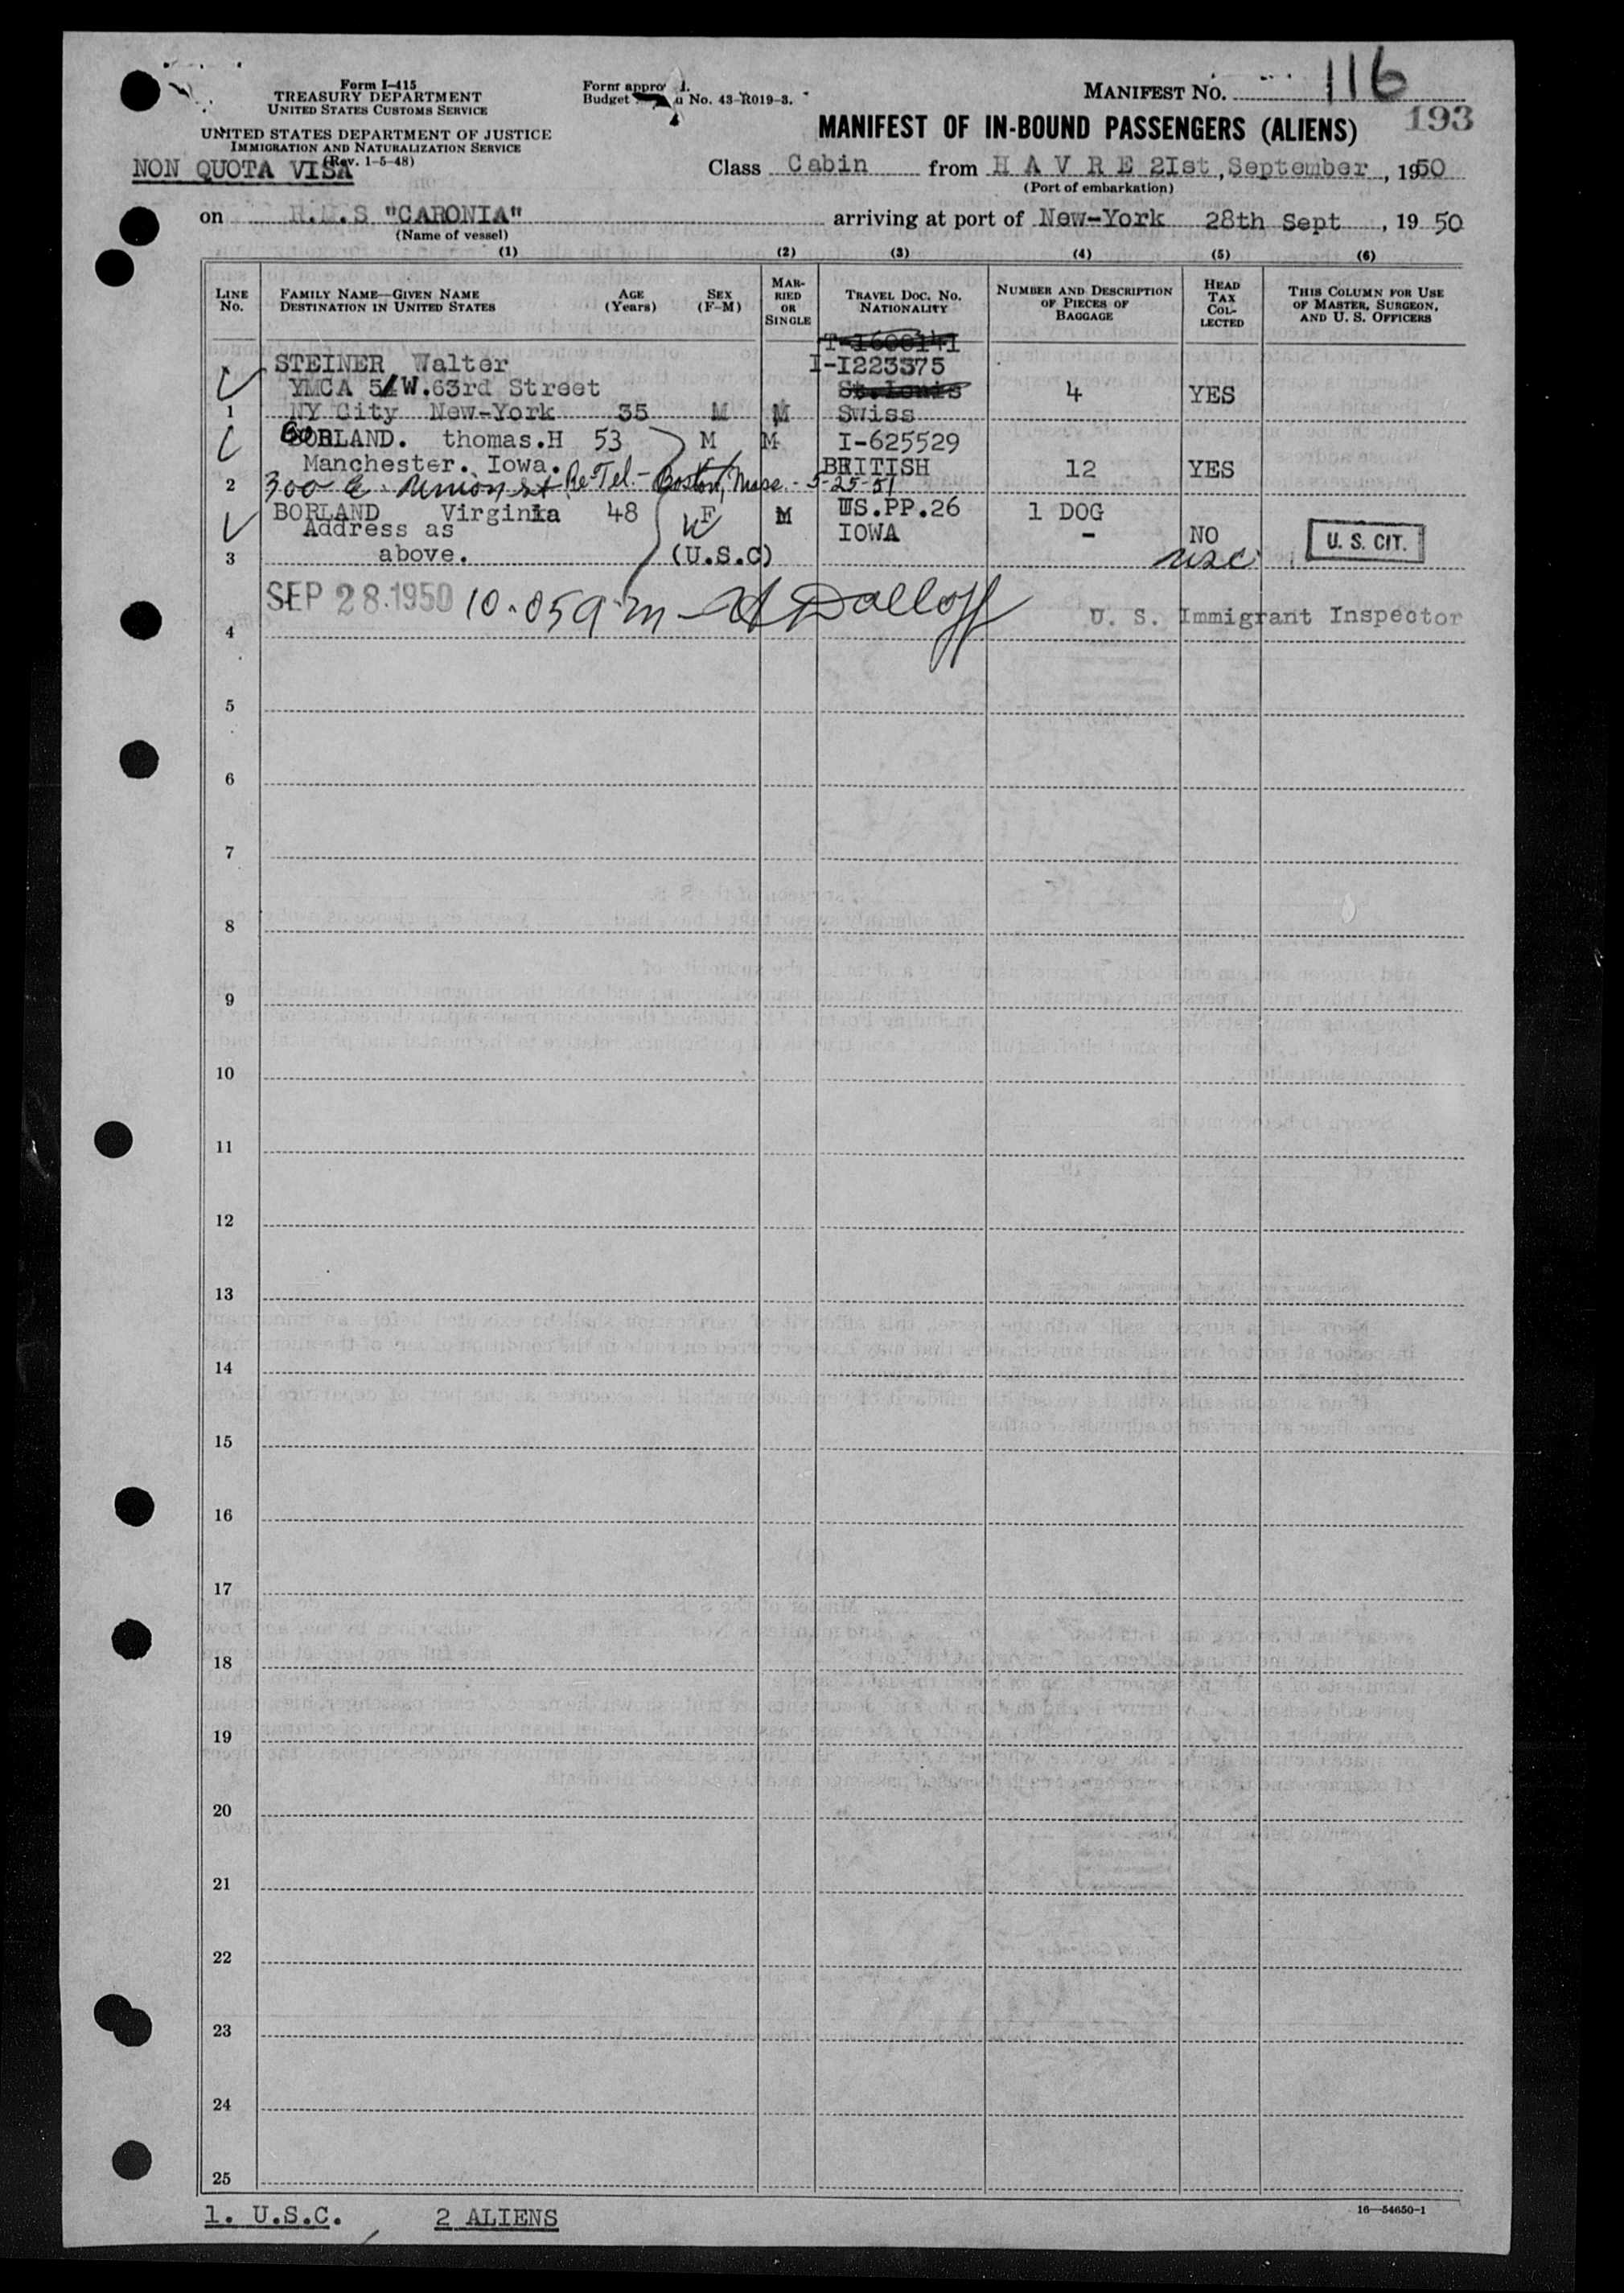 Form I-415
TREASURY DEPARTMENT
UNITED STATES CUSTOMS SERVICE
UNITED STATES DEPARTMENT OF JUSTICE
IMMIGRATION AND NATURALIZATION SERVICE
(Rev. 1-5-48)
NON QUOTA VISA
Form appro d.
Budget u No. 43-R019-3.
MANIFEST NO. 116
193
MANIFEST OF IN-BOUND PASSENGERS (ALIENS)
Class Cabin from H A V R E 2Ist, September, 1950
(Port of embarkation)
on R.M.S "CARONIA" arriving at port of New-York 28th Sept, 19 50
(Name of vessel)
(1) (2) (3) (4) (5) (6)
LINE NO. FAMILY NAME—GIVEN NAME DESTINATION IN UNITED STATES AGE (Years) SEX (F-M) MARRIED OR SINGLE TRAVEL DOC. NO. NATIONALITY NUMBER AND DESCRIPTION OF PIECES OF BAGGAGE HEAD TAX COLLECTED THIS COLUMN FOR USE OF MASTER, SURGEON, AND U. S. OFFICERS
T-1600141
STEINER Walter I-I223375
YMCA 5 W.63rd Street St.Louis 4 YES
1 NY City New-York 35 M M Swiss
BORLAND. thomas.H 53 M M I-625529
Manchester. Iowa. BRITISH 12 YES
2 300 E. Union st Re-Tel.- Boston, Mass. - 5-25-51
BORLAND Virginia 48 F M US.PP.26 1 DOG
Address as IOWA - NO U. S. CIT.
3 above. (U.S.C) usc
SEP 28.1950 10.05 am U. S. Immigrant Inspector
4
5
6
7
8
9
10
11
12
13
14
15
16
17
18
19
20
21
22
23
24
25
1. U.S.C. 2 ALIENS
16—54650-1